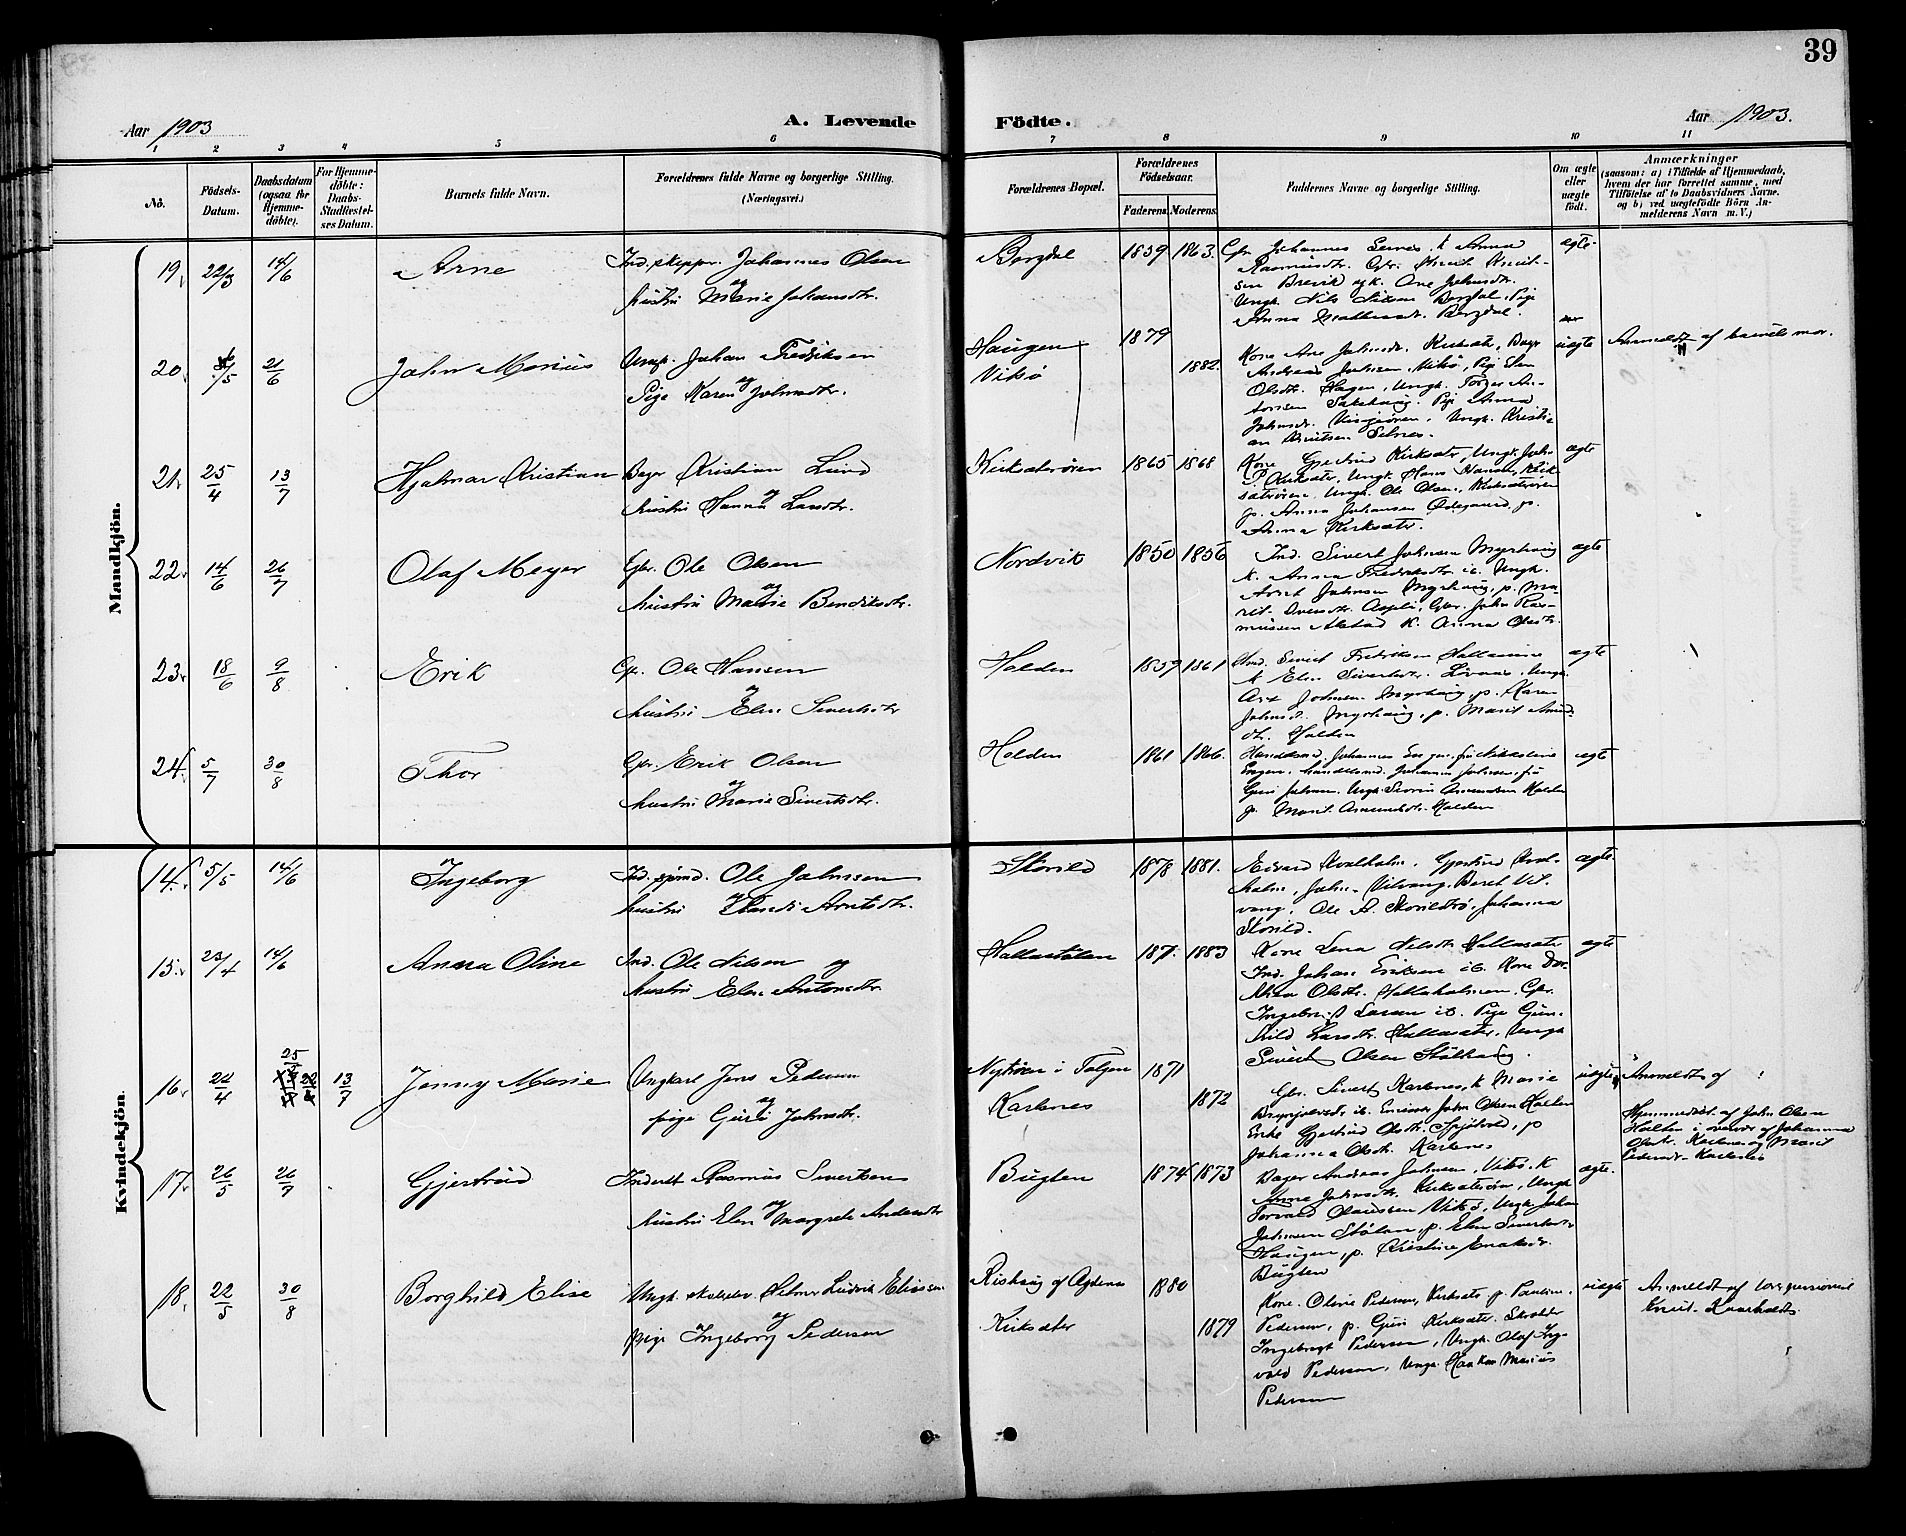 39
Aar 1903
A. Levende
Födte.
Aar 1903.
1 2 3 4 5 6 7 8 9 10 11
No.
Födsels-Datum.
Daabsdatum (ogsaa for Hjemme-döbte).
For Hjemme-döbte: Daabs-Stadfæstel-ses Datum.
Barnets fulde Navn.
Forældrenes fulde Navne og borgerlige Stilling.
(Næringsvei.)
Forældrenes Bopæl.
Forældrenes Födselsaar.
Faderens. Moderens.
Faddernes Navne og borgerlige Stilling.
Om ægte eller uægte födt.
Anmærkninger
(saasom: a) i Tilfælde af Hjemmedaab,
hvem der har forrettet samme, med
Tilföielse af to Daabsvidners Navne.
og b) ved uægtefödte Börn An-
melderens Navn m. V.)
Mandkjön.
19. 22/3 14/6 Arne
Ind. skipper Johannes Olsen
og
hustru Marie Johansdtr.
Bergdal 1859 1863.
Gbr. Johannes Sernes, k. Anna
Rasmusdtr. Gbr. Knut Knut-
sen Brevik og k. Ane Johnsdtr.
Ungk. Nils Nilsen Bergdal, Pige
Bergdal.
ægte
20. /5 21/6 John Marius
Ungk. Johan Fredriksen
og
Pige Karen Johnsdtr.
Haugen 1879
Vikø 1882.
Kone Ane Johnsdr. Kirksæter,
Andreas Johnsen, Vikø, Pige Elen
Olsdtr. Hagen, Ungk. Torger An-
tonsen Pige Anna
Johnsdr. Ungk. Kristi-
an Knutsen Selnes.
uægte
Anmeldt af barnets mor.
21. 25/4 13/7 Hjalmar Kristian
Bager Kristian Lund
og
hustru Hanna Larsdtr.
Kirksæterören 1865 1868
Kone Gjertrud Kirksæter, Ungk. John
P. Kirksæter, Ungk. Hans Hansen, Kirk-
sæterören, Ungk. Ole Olsen, Kirksæterören
p. Anna Johansen Ödegaard, p.
Anna Kirksæter.
ægte
22. 14/6 26/7 Olaf Meyer
Gbr. Ole Olsen
og
hustru Marie Bendiksdtr.
Nordvik 1850 1856
Ind. Sivert Johnsen Myrhaug
k. Anna Fredriksdtr. ib. Ungk.
Arnt Johnsen Myrhaug, p. Ma-
rit Gbr. John Ras-
mussen k. Anna Olsdtr.
ægte
23. 18/6 9/8 Erik
Gbr. Ole Hansen
og
hustru Elen Sivertsdtr
Holden 1859 1861
Ind. Sivert Fredriksen
k. Elen Sivertsdtr. Ungk.
Johnsen Myrhaug, p. Karen
Johnsd. Myrhaug, p. Marit
dtr. Holden
ægte
24. 5/7 30/8 Thor
Gbr. Erik Olsen
og
hustru Marie Sivertsdtr.
Holden 1861 1866.
Handelsmd. Johannes
Engen, handelsmd. Johannes Johnsen, fru
Guri Johnsen, Ungk. Sivert Amundsen Holden
p. Marit Amundsdtr. Holden
ægte
Kvindekjön.
14. 5/5 14/6 Ingeborg
Ind. Ole Johnsen
hustru Arntsdtr.
Skorild 1878 1881.
Edvard Kvalholm, Gjertrud Kval-
holm, John Vitvang, Beret Vit-
vang, Ole A. Skorildrø, Johanna
Skorild.
ægte.
15. 23/4 14/6 Anna Oline
Ind. Ole Nilsen og
hustru Elen Antonsdtr
Hallastölen 187. 1883
Kone Lena Nilsdt. Hallasæter
Ind. Johan Eriksen ib. Kone Dor-
thea Olsdtr. Hallaholmen, Gbr.
Ingebrigt Larsen ib. Pige Gun-
hild Larsdtr. Hallasæter, Ungk.
Sivert Olsen Stölhaug.
ægte
16. 22/4 25 13/7 Jenny Marie
Ungkarl Jens Pedersen
og
pige Guri Johnsdtr.
Nytröen i Tolgen 1871
Karlsnes 1872
Gbr. Sivert Karlsnes, k. Marie
Brynjolvsdr. ib. Enkem. John Olsen Holten
Enke Gjertrud Olsdt. p
Johanna Olsdt. Karlsnes
uægte
Anmeldt af
Hjemmedöbt af John Olsen
Holten i nærvær af Johanna
Olsdt. Karlsnes og Marit
Pedersdt. Karlsnes
17. 26/5 26/7 Gjertrud
Inderst Rasmus Sivertsen
og
hustru Elen Margrete Andersdtr
Bugten 1874 1873
Bager Andreas Johnsen, Vikø, k.
Anne Johnsdtr. Kirksæterören, Ungk.
Torvald Olaussen Vikø, Ungk. Johan
Johnsen Stölan, p. Elen Sivertsdtr
Haugen, p. Kristine
Bugten
ægte.
18. 22/5 30/8 Borghild Elise
Ungk. Helmer Ludvik Elissen
og
pige Ingeborg Pedersen
Rishaug af Agdenes 1880
Kirksæter 1879
Kone Oline Pedersen, Kirksæter p. Pauline
Pedersen, p. Guri Kirksæter,
Ingebrigt Pedersen, Ungk. Olaf Ing-
vald Pedersen, Ungk. Haakon Marius
Pedersen
uægte
Anmeldt af
Knut